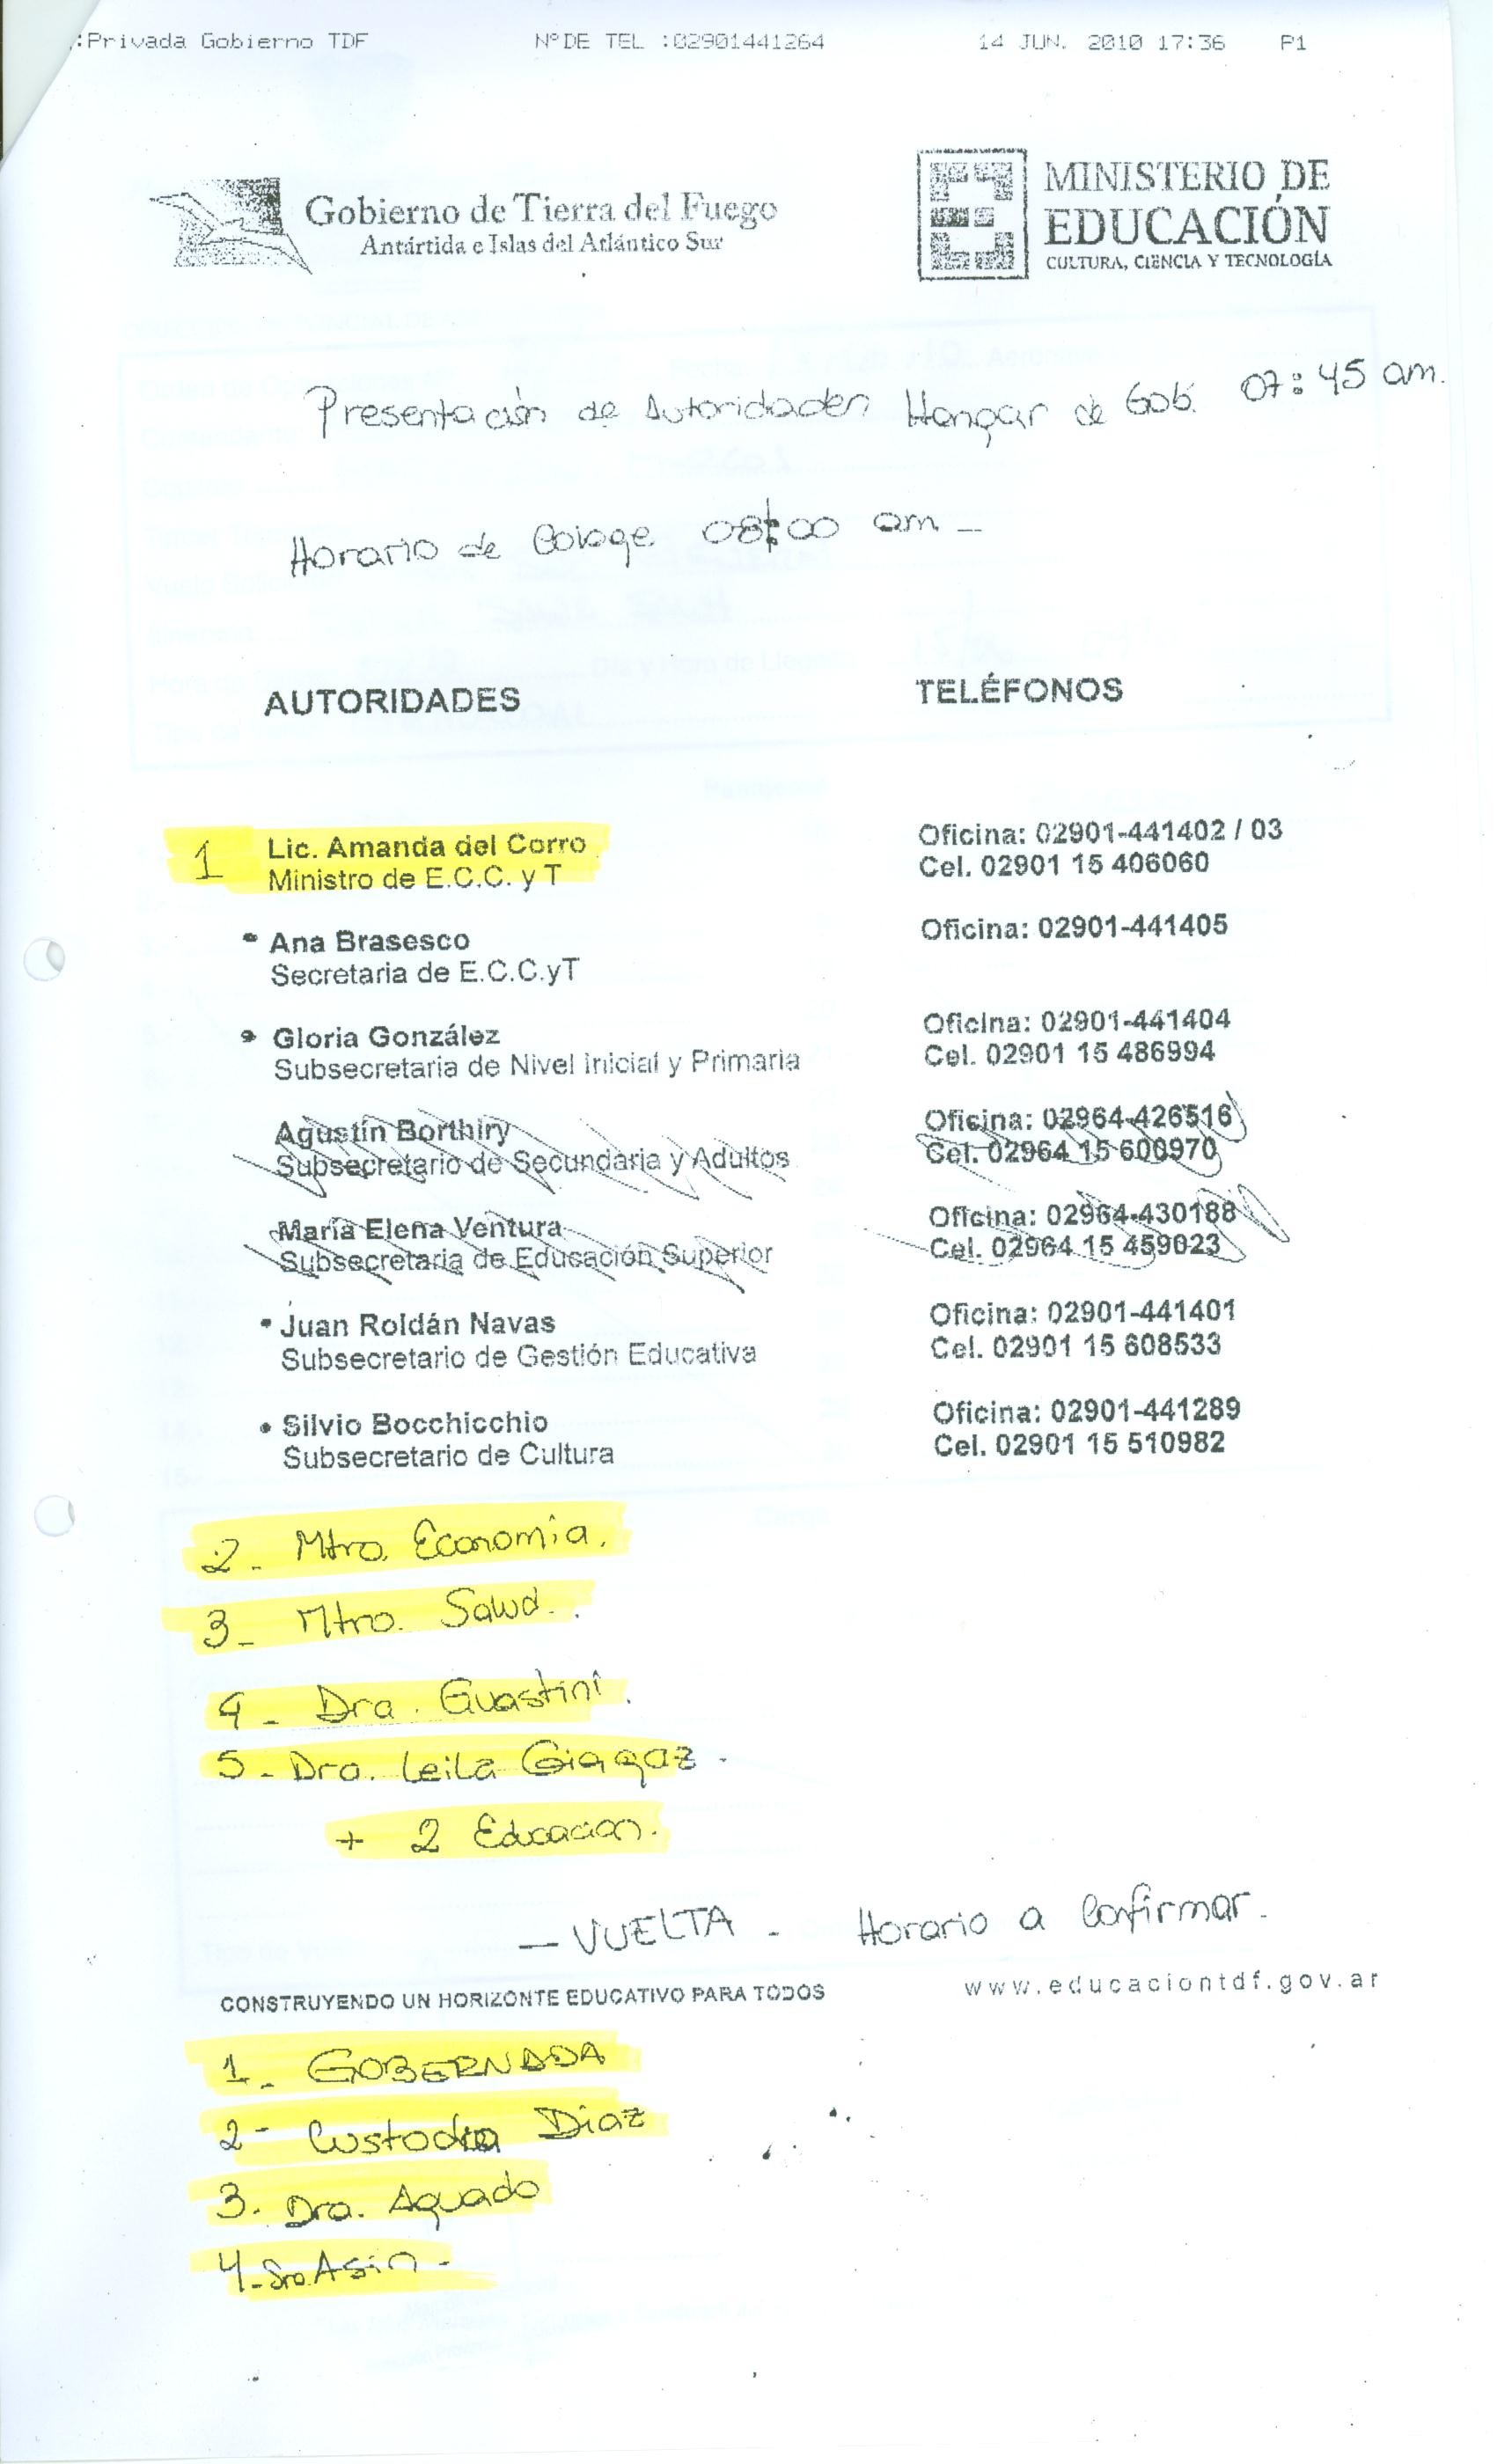 :Privada Gobierno TDF N°DE TEL :02901441264 14 JUN. 2010 17:36 P1
Gobierno de Tierra del Fuego
Antártida e Islas del Atlántico Sur
MINISTERIO DE
EDUCACIÓN
CULTURA, CIENCIA Y TECNOLOGÍA
Presentación de Autoridades Hangar de Gob. 07:45 am.
Horario de 08:00 am -
AUTORIDADES TELÉFONOS
1 Lic. Amanda del Corro Oficina: 02901-441402 / 03
Ministro de E.C.C. y T Cel. 02901 15 406060
Ana Brasesco Oficina: 02901-441405
Secretaria de E.C.C.yT
Gloria González Oficina: 02901-441404
Subsecretaria de Nivel Inicial y Primaria Cel. 02901 15 486994
Agustín Borthiry Oficina: 02964-426516
Subsecretario de Secundaria y Adultos Cel. 02964 15 600970
María Elena Ventura Oficina: 02964-430188
Subsecretaria de Educación Superior Cel. 02964 15 459023
Juan Roldán Navas Oficina: 02901-441401
Subsecretario de Gestión Educativa Cel. 02901 15 608533
Silvio Bocchicchio Oficina: 02901-441289
Subsecretario de Cultura Cel. 02901 15 510982
2- Mtro. Economia.
3- Mtro. Salud.
4- Dra. Guastini.
5- Dra. Leila
+ 2 Educacion.
- VUELTA - Horario a Confirmar.
CONSTRUYENDO UN HORIZONTE EDUCATIVO PARA TODOS www.educaciontdf.gov.ar
1- GOBERNADA
2- Custodia Diaz
3. Dra. Aguado
4- Sra. Asin -